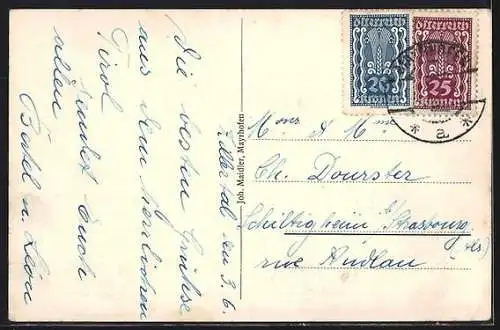 Zillertal den 3. 6.
Die besten Grüsse
aus dem herrlichen
Tirol
sendet Euch
allen
Joh. Maidler, Mayrhofen
Österreich
20
Kronen
Österreich
25
Kronen
* a *
Mons & Mme
Ch. Dourster
Schiltigheim s/ Strasbourg
(Als)
rue Andlau